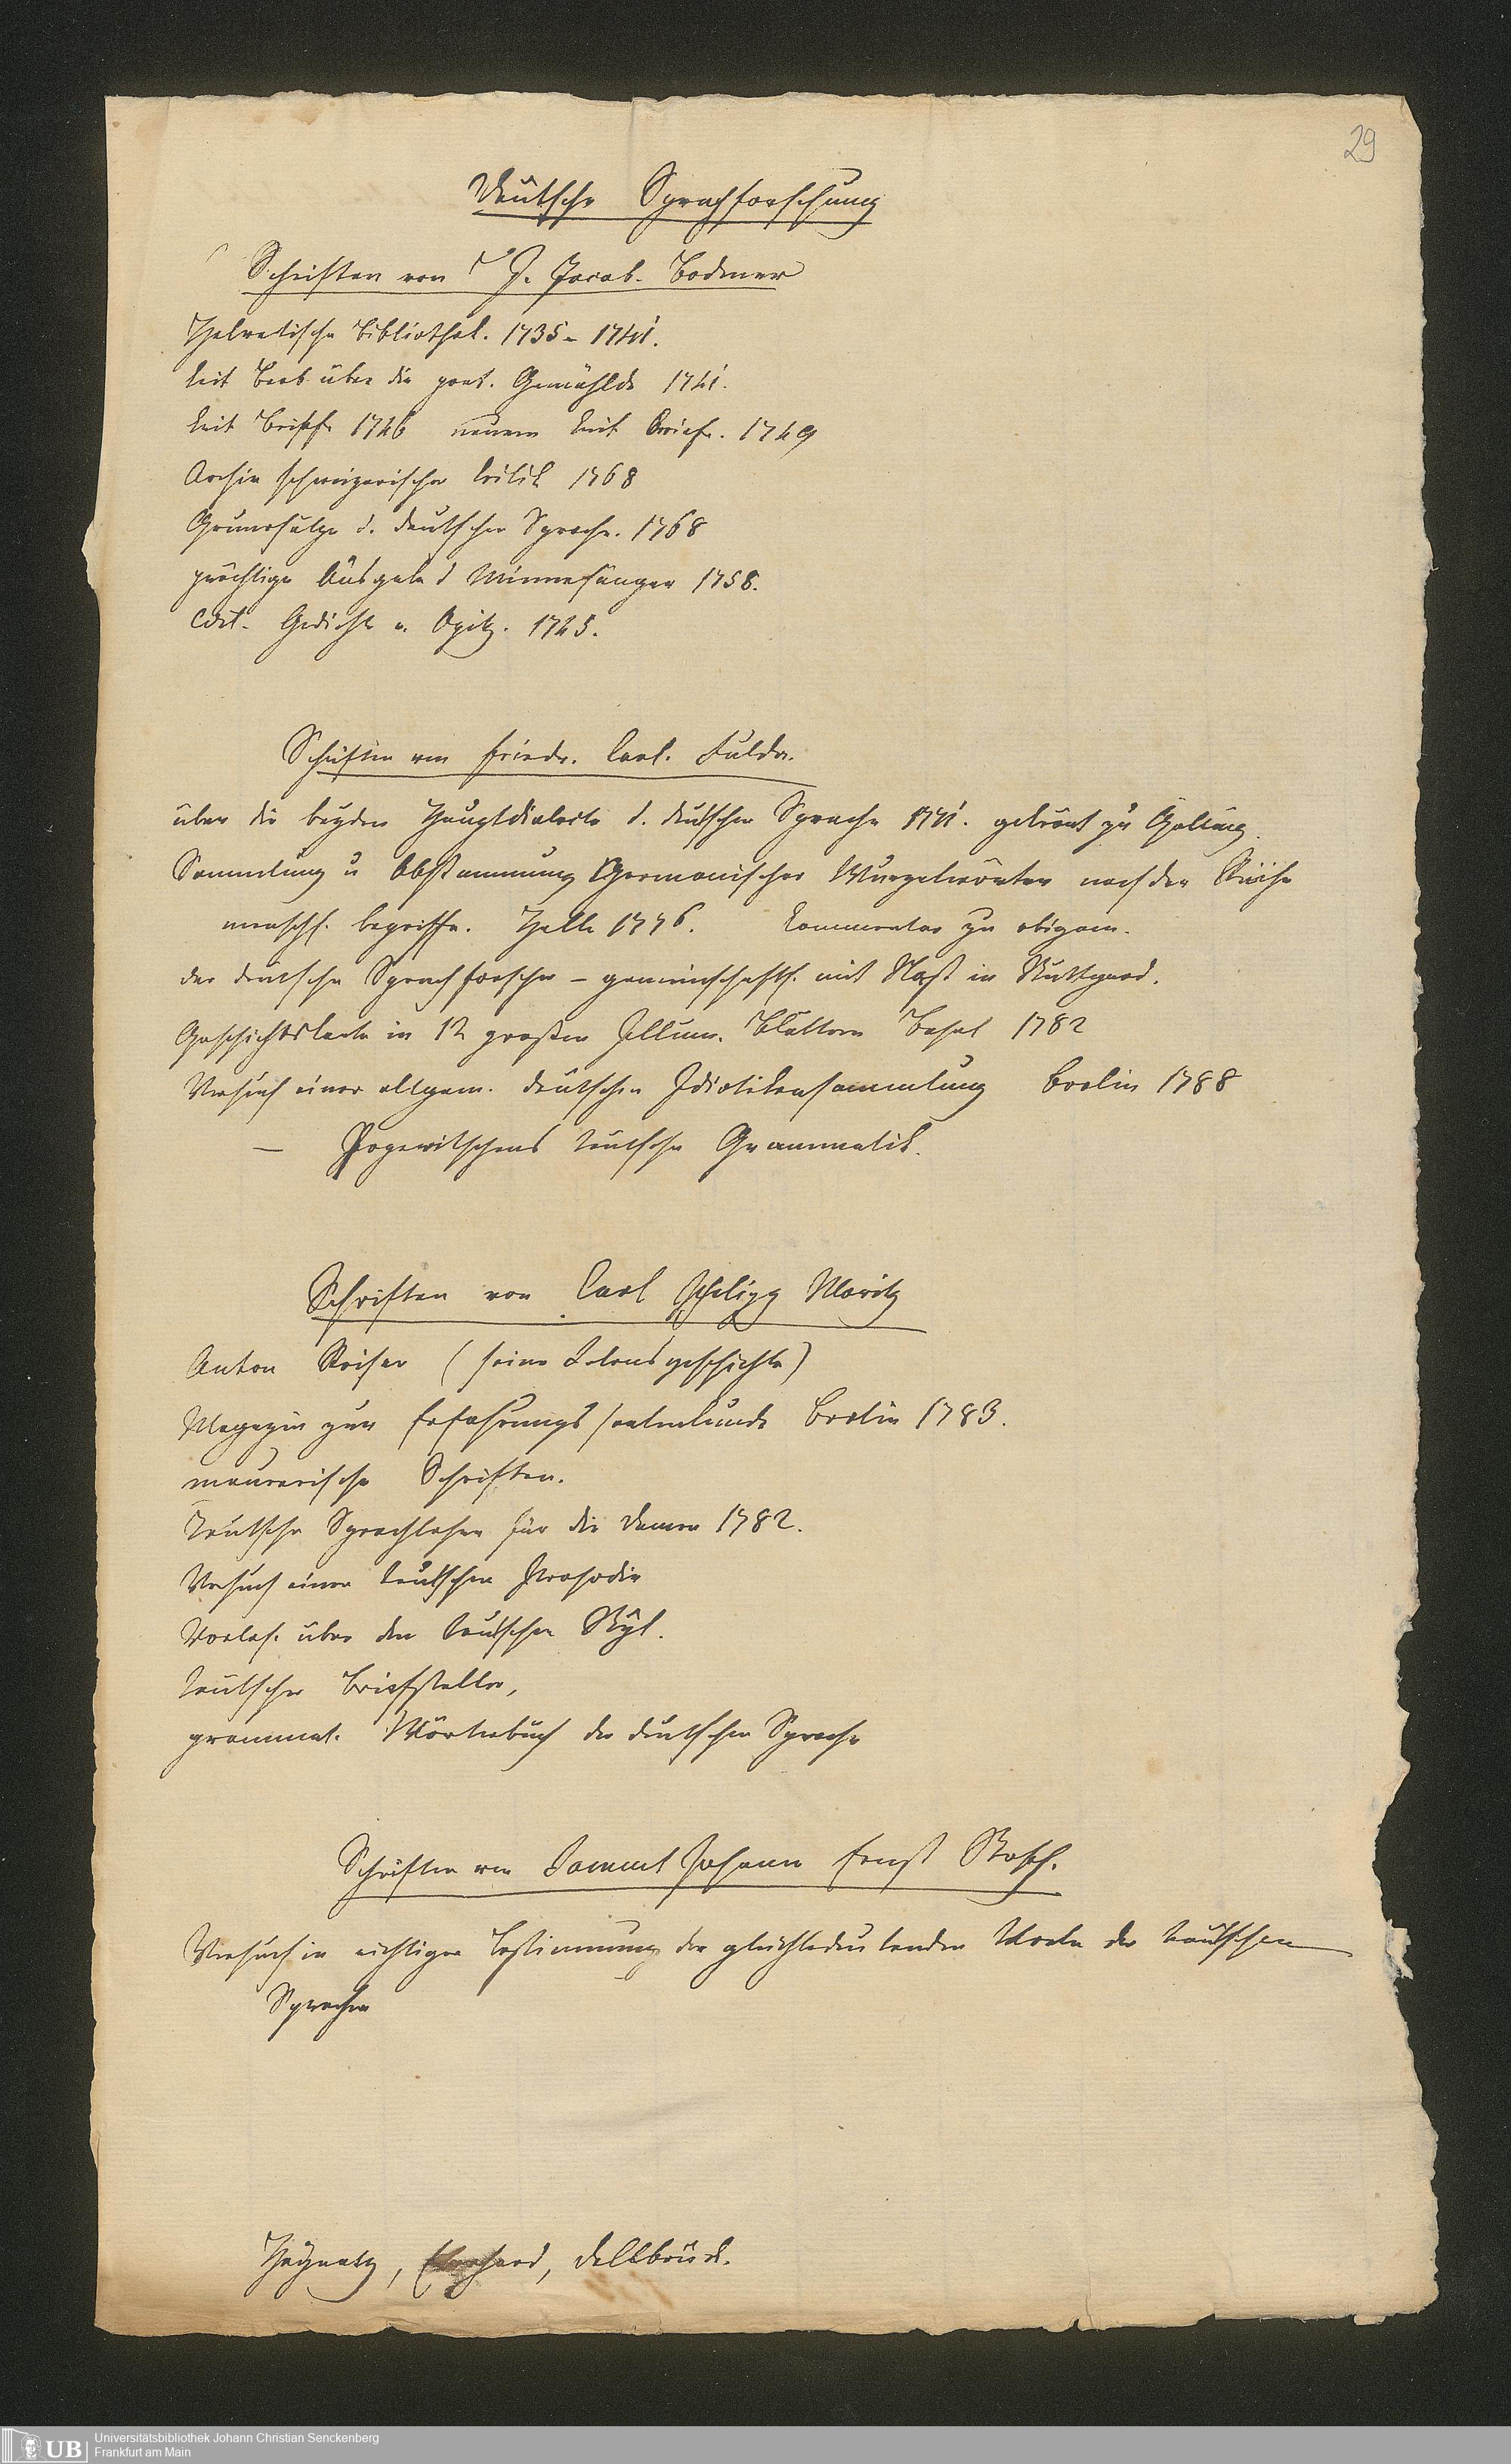 29
Deutsche Sprachforschung
Schriften von J. Jacob. Bodmer
Helvetische Bibliothek. 1735 - 1741.
krit Beob. über die poet. Gemählde 1741.
krit Briefe 1746 neuere krit Briefe. 1749
Archiv schweizerischer Critik 1768
Grundsätze d. deutschen Sprache. 1768
prächtige Ausgabe d Minnesänger 1758.
edit. Gedichte v. Opitz. 1745.
Schriften von Friedr. Carl. Fulda.
über die beyden Hauptdialecte d. deutschen Sprache 1771. gekrönt zu Götting.
Sammlung u Abstammung Germanischer Wurzelwörter nach der Reihe
menschl. Begriffe. Halle 1776. Commentar zu obigem.
der deutsche Sprachforscher - gemeinschaftl. mit Nast in Stuttgard.
Geschichtskarte in 12 großen Illum. Blättern Basel 1782
Versuch einer allgem. deutschen Idiotikensammlung Berlin 1788
— teutsche Grammatik.
Schriften von Carl Philipp Moritz
Anton Reiser (seine Lebensgeschichte)
Magazin zur Erfahrungsseelenkunde Berlin 1783.
maurerische Schriften.
Teutsche Sprachlehre für die Damen 1782.
Versuch einer teutschen Prosodie
Vorles. über den teutschen Styl.
teutscher Briefsteller,
grammat. Wörterbuch der deutschen Sprache
Schriften von Samuel Johann Ernst Stosch.
Versuch in richtiger Bestimmung der gleichbedeutenden Worte der teutschen
Sprache
Heynatz, Eberhard, Dellbrück.
Universitätsbibliothek Johann Christian Senckenberg
Frankfurt am Main
UB